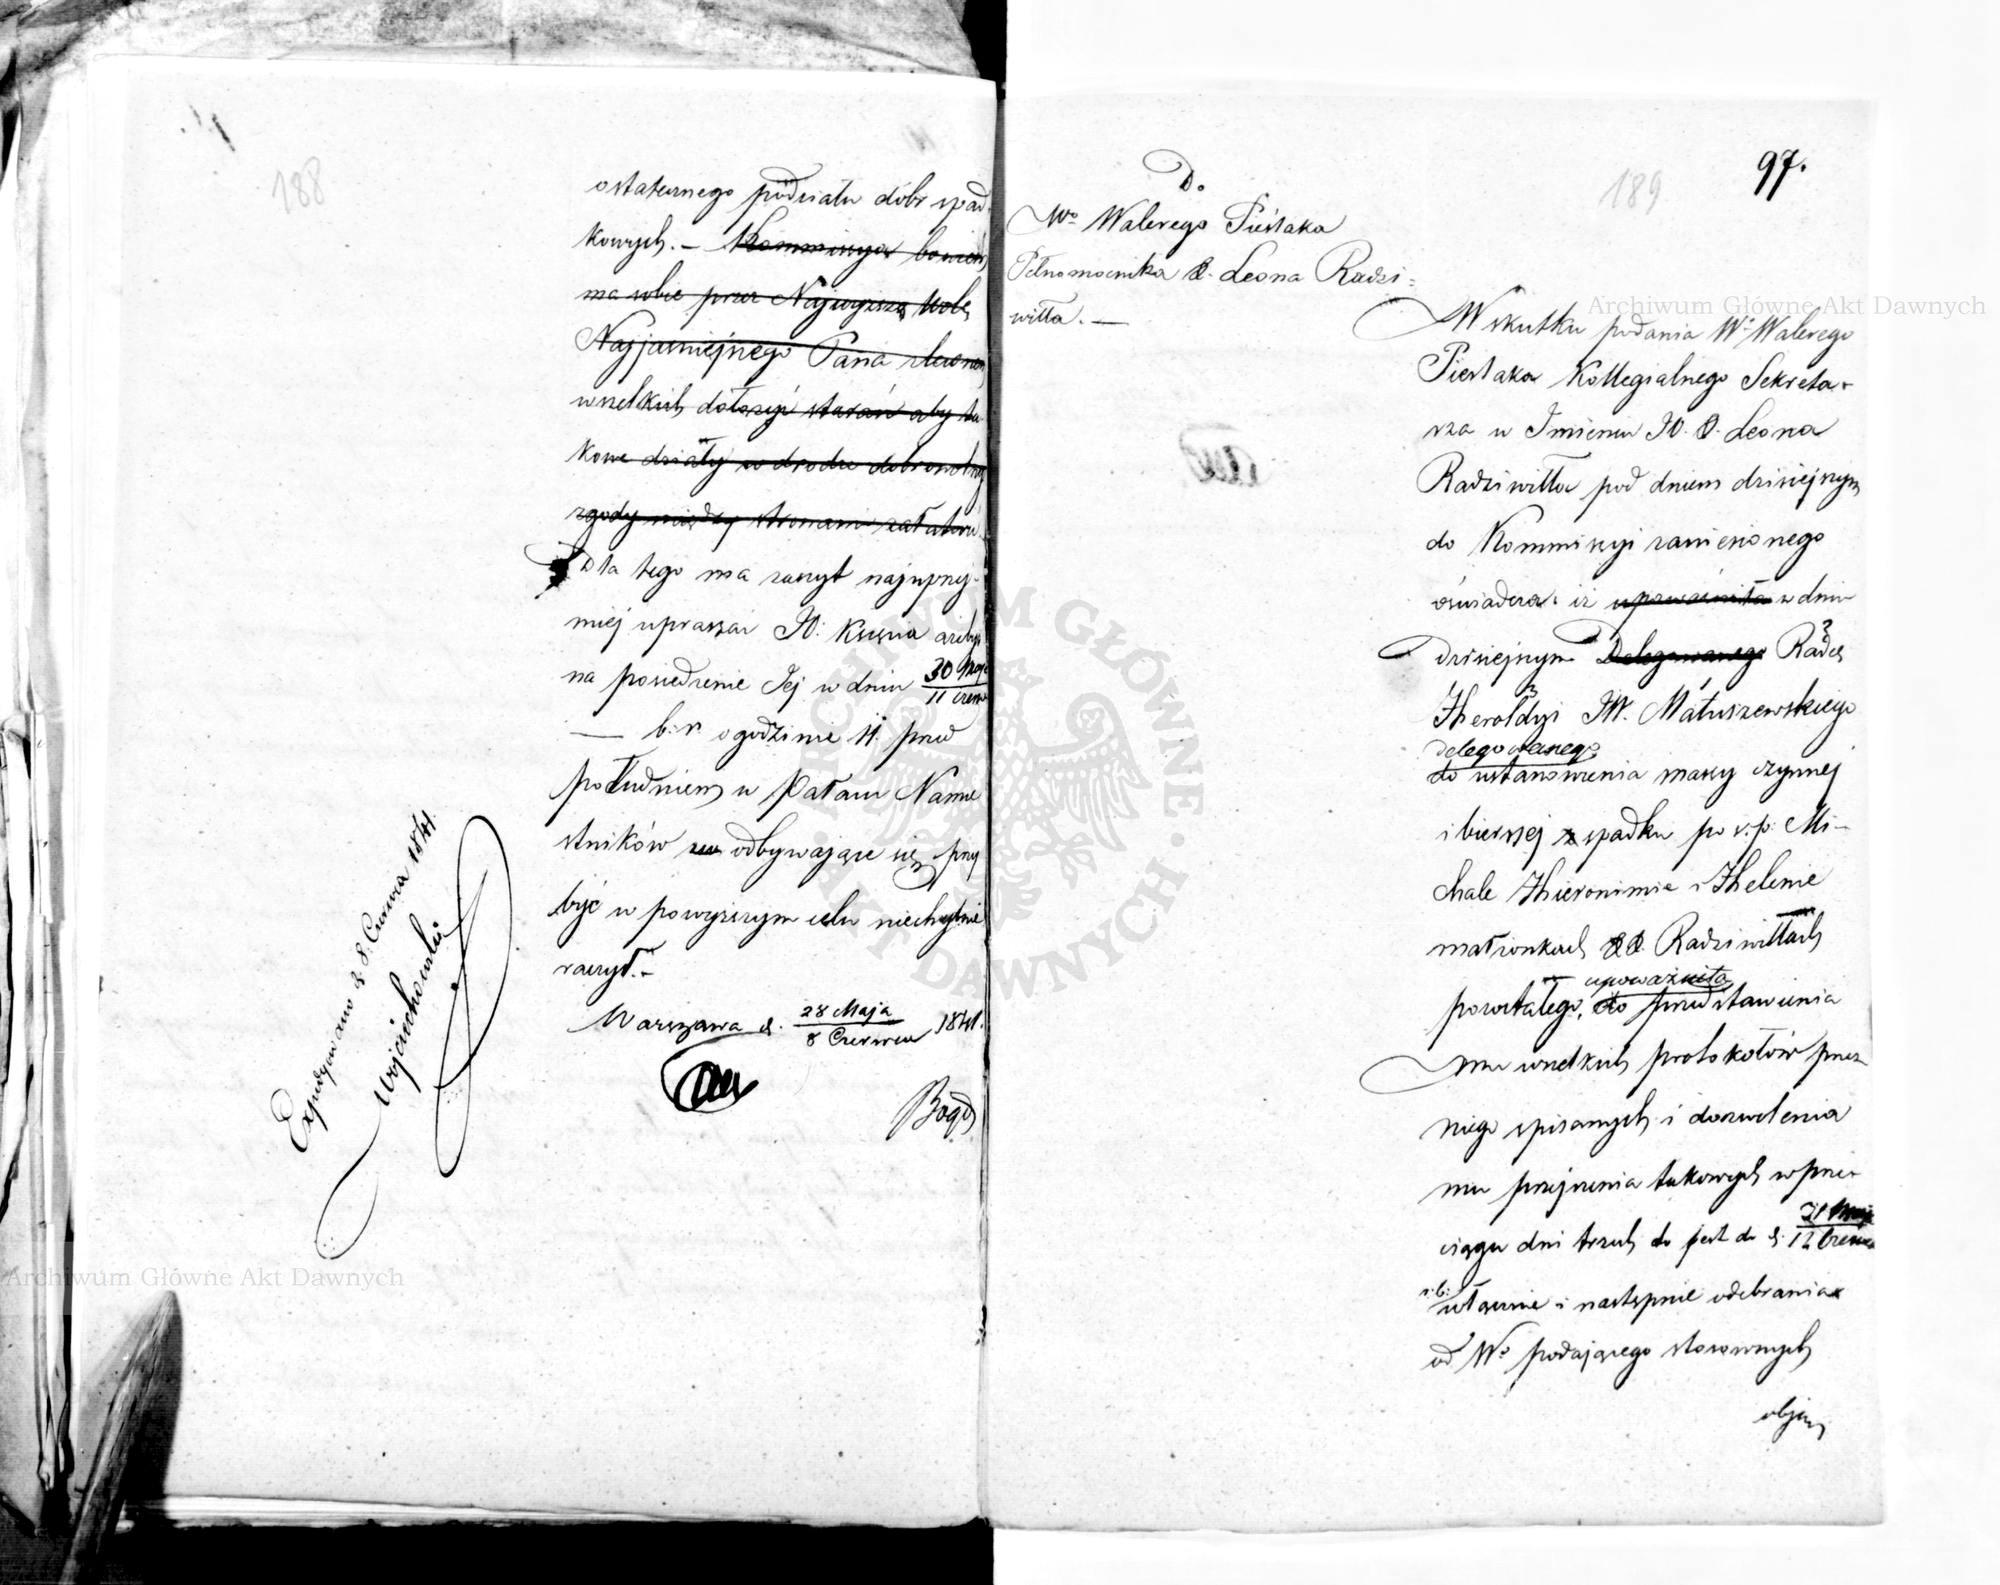 188
ostatecznego podziału dóbr spad-
kowych. – Kommissya bowiem
ma sobie przez Najwyższą Wolę
Najjaśniejszego Pana zlecone
wszelkich dołożyć starań aby ta-
kowe działy w drodze dobrowolnej
zgody między stronami załatwić.
Dla tego ma zaszczyt najuprzej-
miej upraszać JO: Księcia ażeby
na posiedzenie Jej w dniu 30 Maja / 11 Czerw
— b.r. o godzinie 11. przed
południem w Pałacu Namie
stników odbywające się przy
być w powyższym celu niechybnie
raczył. –
Warszawa d. 28 Maja / 8 Czerwca 1841.
Bogd
Expedyowano d. 8. Czerwca 1841.
Wojciechowski
97.
189
Do
Wo Walerego Pieślaka
Pełnomocnika X. Leona Radzi-
wiłła. —
W skutku podania Wo Walerego
Pieślaka Kollegialnego Sekreta-
rza w Imieniu JO. X. Leona
Radziwiłła pod dniem dzisiejszym
do Kommissyi zaniesionego
oświadcza: iż upoważniła w dniu
dzisiejszym Delegowanego Radcę
Heroldyi JW. Matuszewskiego
delegowanego
do ustanowienia massy czynnej
i bierney spadku po ś.p. Mi-
chale Hieronimie i Helenie
małżonkach XX. Radziwiłłach
upoważniła
pozostałego, do przedstawienia
mu wszelkich protokołów przez
niego spisanych i dozwolenia
mu przejrzenia takowych w prze-
ciągu dni trzech to jest do d. 31 Maja / 12 Czerwca
r.b.
włącznie i następnie odebrania
od Wo podającego stosownych
objaś
Archiwum Główne Akt Dawnych
Archiwum Główne Akt Dawnych
ARCHIWUM GŁÓWNE · AKT DAWNYCH ·